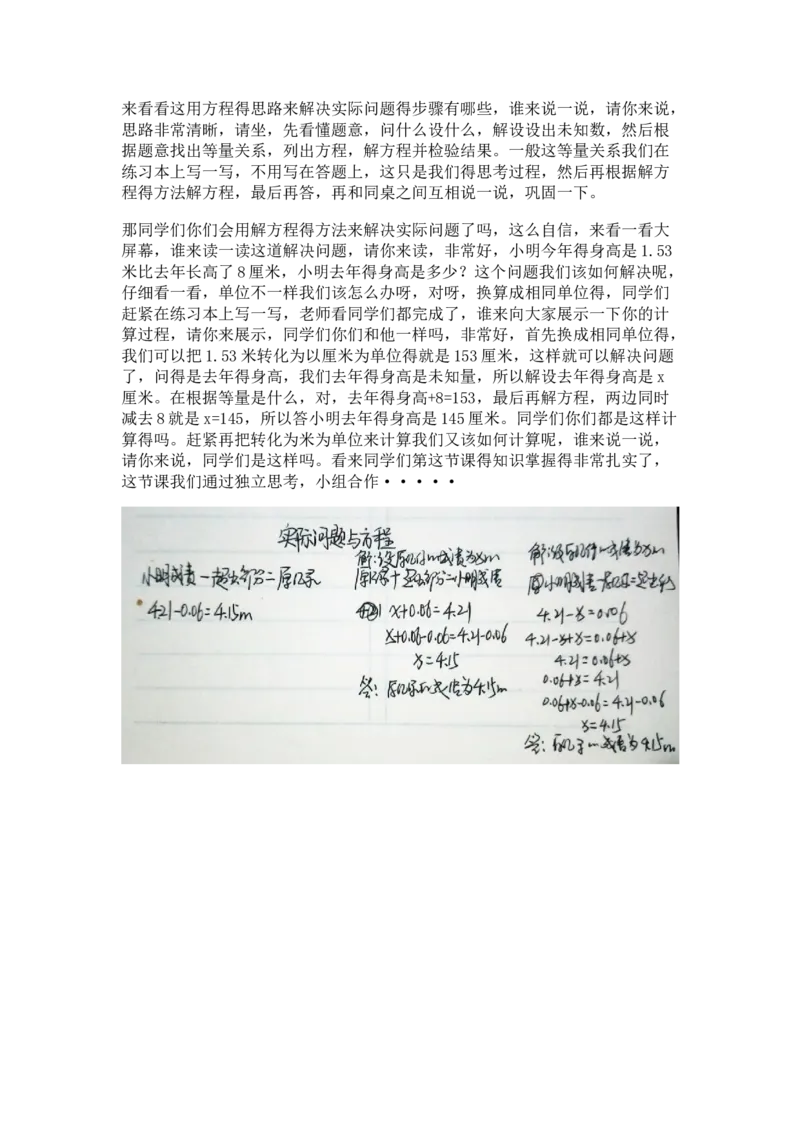 来看看这用方程得思路来解决实际问题得步骤有哪些，谁来说一说，请你来说，
思路非常清晰，请坐，先看懂题意，问什么设什么，解设设出未知数，然后根
据题意找出等量关系，列出方程，解方程并检验结果。一般这等量关系我们在
练习本上写一写，不用写在答题上，这只是我们得思考过程，然后再根据解方
程得方法解方程，最后再答，再和同桌之间互相说一说，巩固一下。
那同学们你们会用解方程得方法来解决实际问题了吗，这么自信，来看一看大
屏幕，谁来读一读这道解决问题，请你来读，非常好，小明今年得身高是1.53
米比去年长高了8厘米，小明去年得身高是多少？这个问题我们该如何解决呢，
仔细看一看，单位不一样我们该怎么办呀，对呀，换算成相同单位得，同学们
赶紧在练习本上写一写，老师看同学们都完成了，谁来向大家展示一下你的计
算过程，请你来展示，同学们你们和他一样吗，非常好，首先换成相同单位得，
我们可以把1.53米转化为以厘米为单位得就是153厘米，这样就可以解决问题
了，问得是去年得身高，我们去年得身高是未知量，所以解设去年得身高是x
厘米。在根据等量是什么，对，去年得身高+8=153，最后再解方程，两边同时
减去8就是x=145，所以答小明去年得身高是145厘米。同学们你们都是这样计
算得吗。赶紧再把转化为米为单位来计算我们又该如何计算呢，谁来说一说，
请你来说，同学们是这样吗。看来同学们第这节课得知识掌握得非常扎实了，
这节课我们通过独立思考，小组合作·····
实际问题与方程
小明成绩－超出部分=原纪录
4.21-0.06=4.15m
解:设原纪录成绩为xm
原纪录+超出部分=小明成绩
x+0.06=4.21
x+0.06-0.06=4.21-0.06
x=4.15
答：原纪录成绩为4.15m
解:设原纪录成绩为xm
小明成绩-原纪录=超出部分
4.21-x=0.06
4.21-x+x=0.06+x
4.21=0.06+x
0.06+x=4.21
0.06+x-0.06=4.21-0.06
x=4.15
答：成绩为4.15m